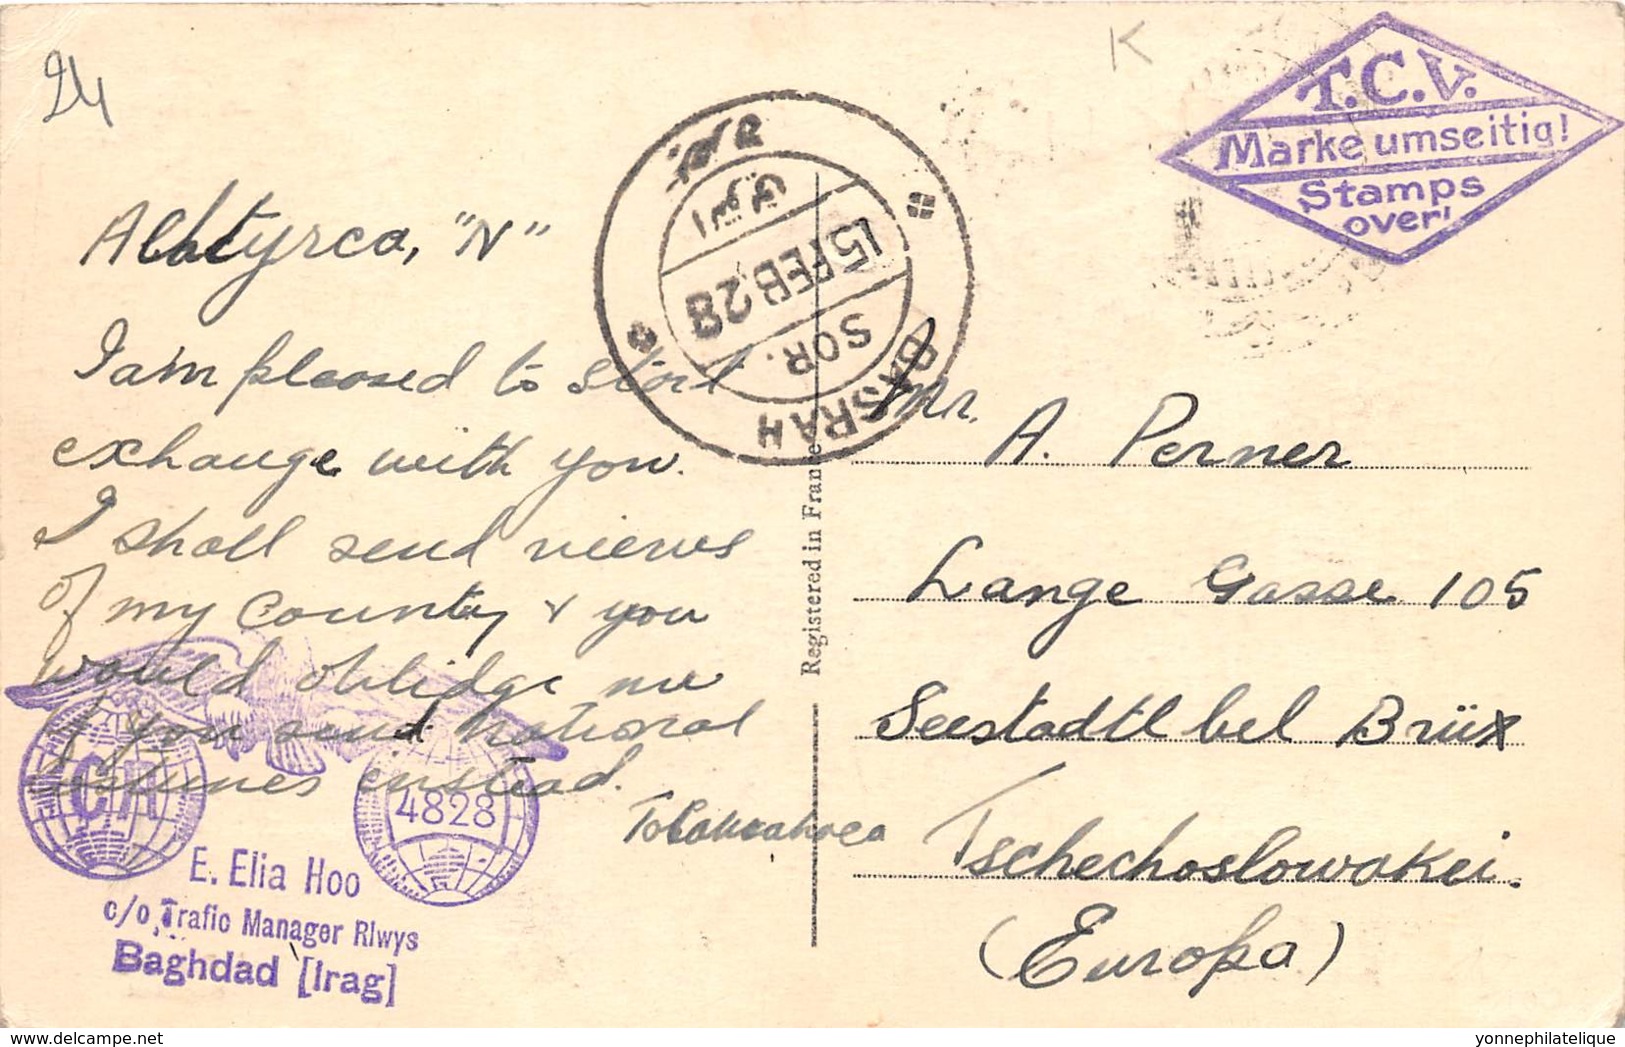 24
K
T.C.V.
Marke umseitig!
Stamps
over!
"N"
بصره
15 FEB 28
SOR.
BASRAH
I am pleased to start
exchange with you.
I shall send views
of my County & you
would oblidge me
if you send national
enstead.
CH
4828
E. Elia Hoo
c/o, Trafic Manager Rlwys
Baghdad [Iraq]
Registered in France
Mr.
A. Perner
Lange Gasse 105
Seestadtl bei Brüx
Tschechoslowakei.
(Europa)
yonnephilatelique